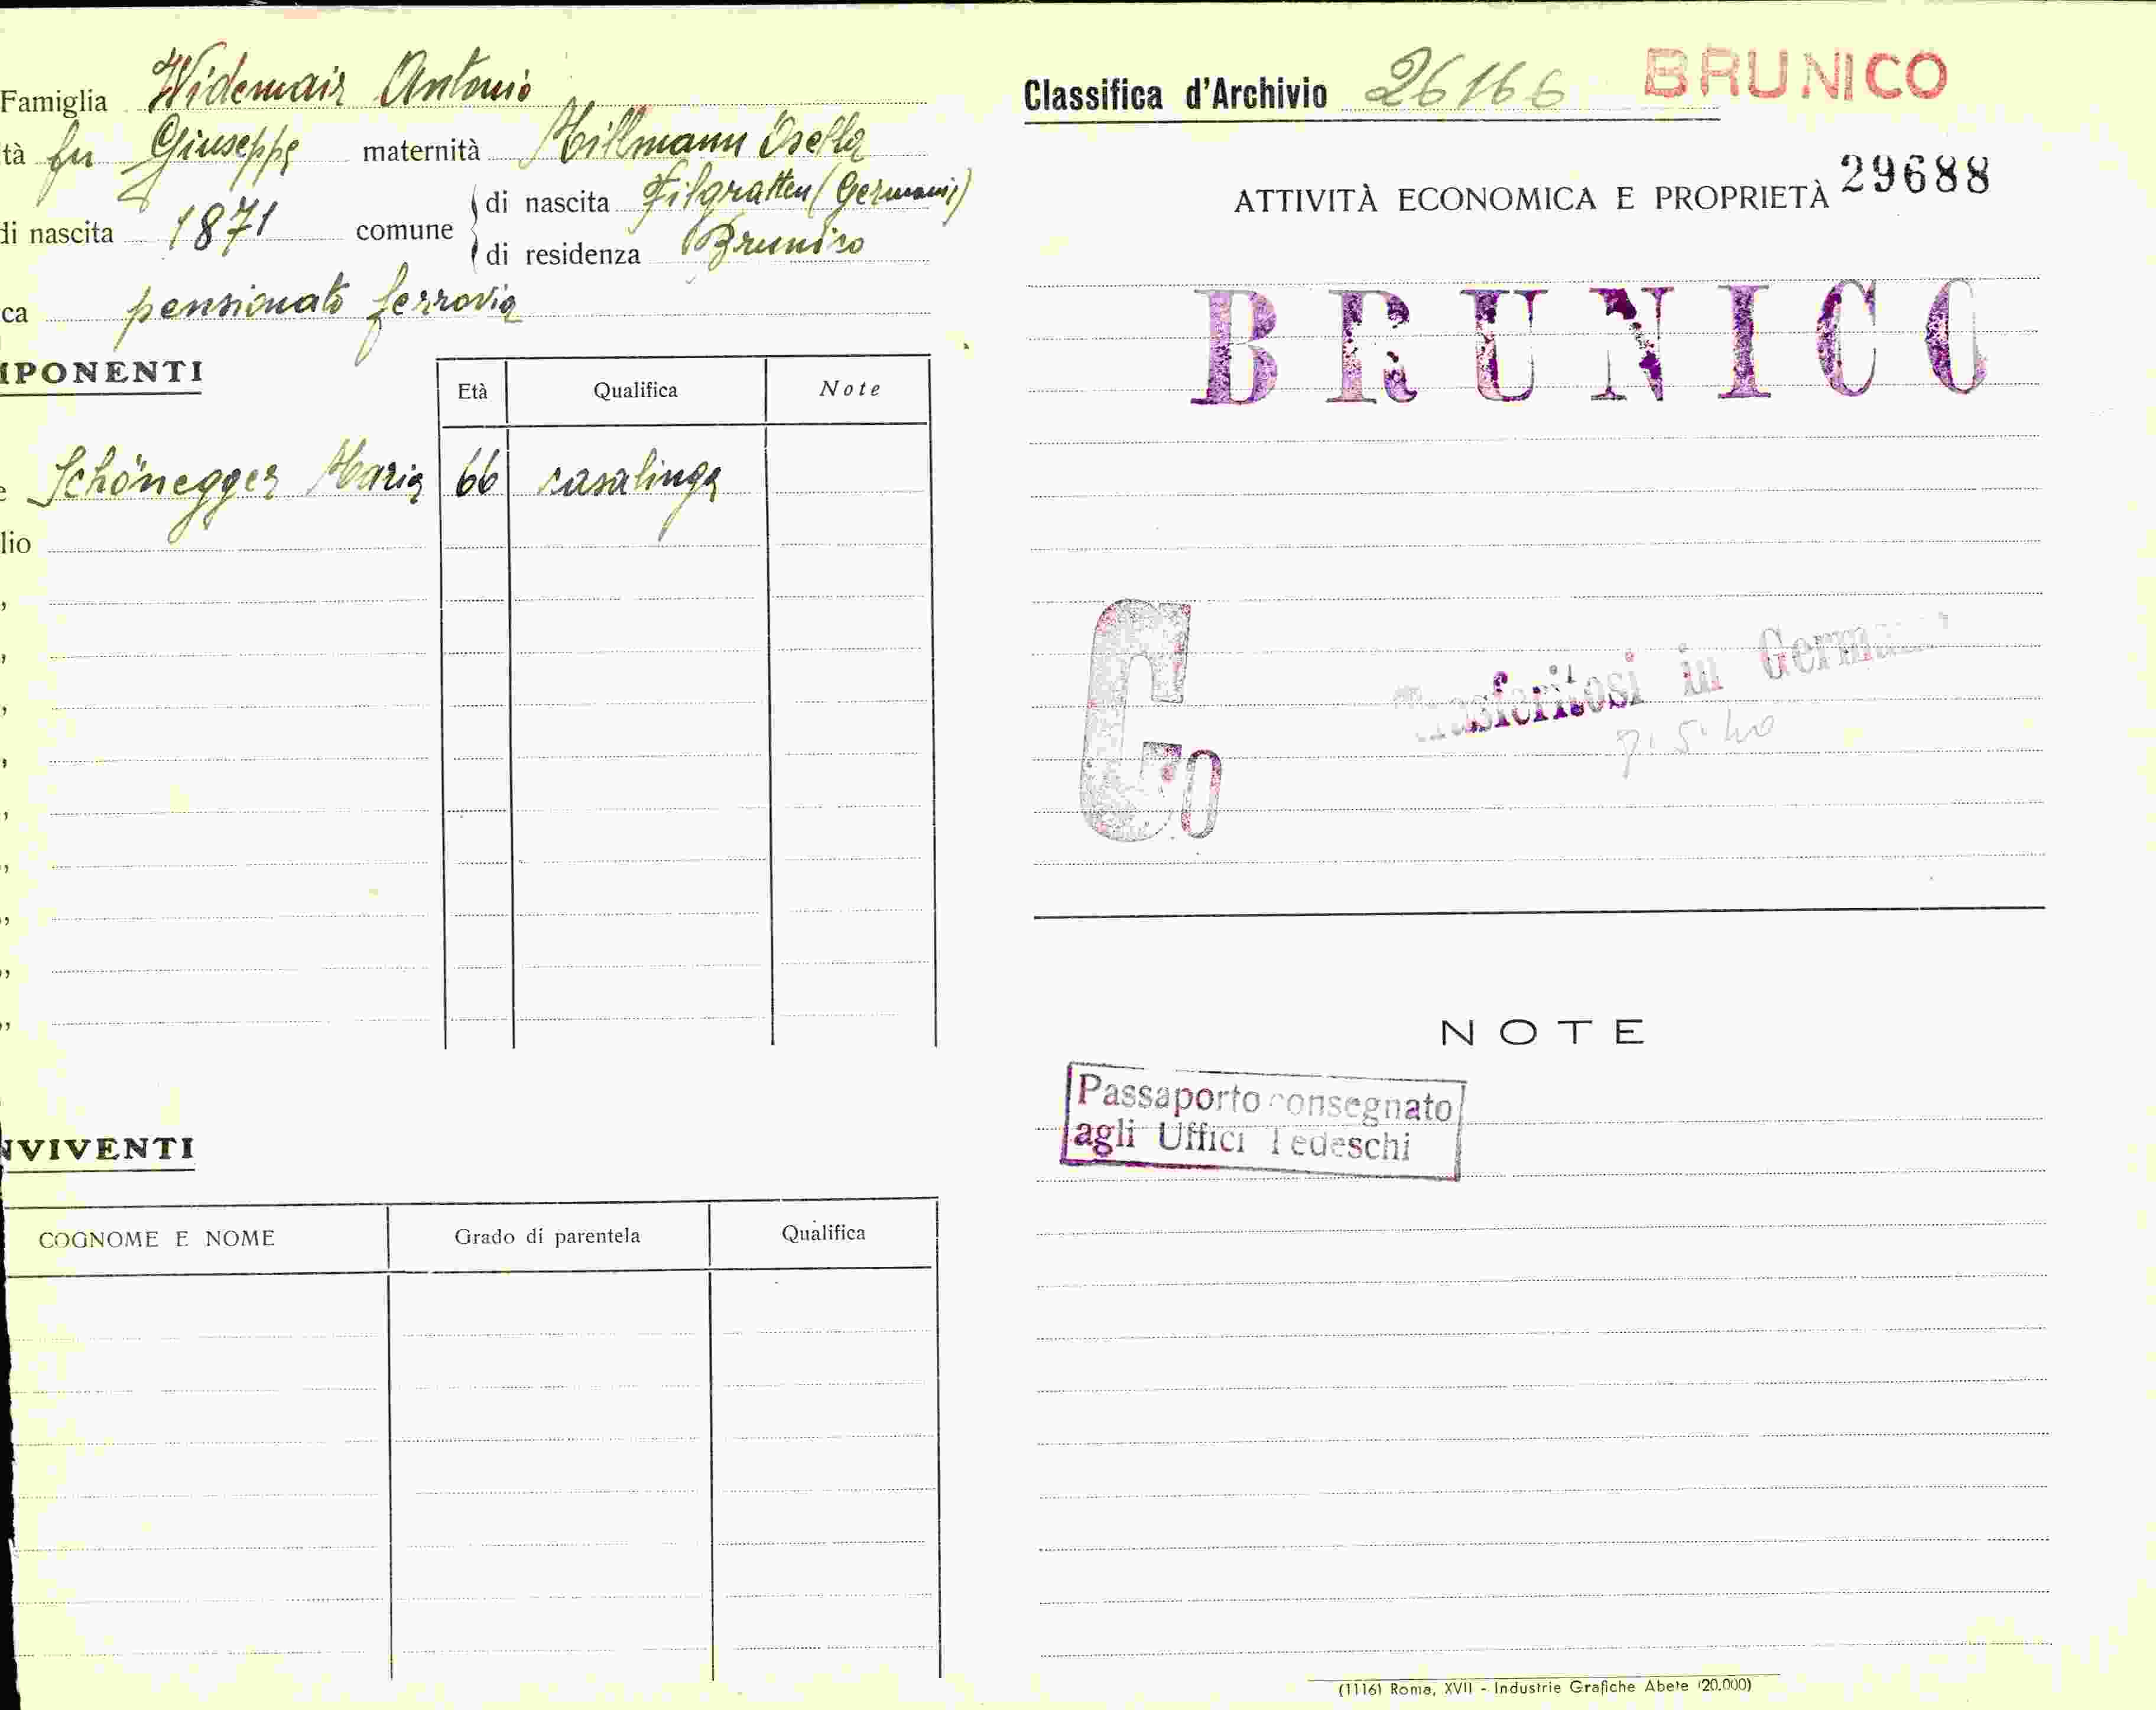 Famiglia Widemair Antonio
tà fu Giuseppe maternità Hillmann Osella
di nascita Filgratten (Germania)
di nascita 1871 comune
di residenza Brunico
ca pensionato ferrovia
MPONENTI
Età Qualifica Note
e Schönegger Maria 66 casalinga
lio
NVIVENTI
COGNOME E NOME Grado di parentela Qualifica
Classifica d'Archivio 26166 BRUNICO
ATTIVITÀ ECONOMICA E PROPRIETÀ 29688
BRUNICO
Go
Trasferitosi in Germania
7.5.40
NOTE
Passaporto consegnato
agli Uffici Tedeschi
(1116) Roma, XVII - Industrie Grafiche Abete (20.000)